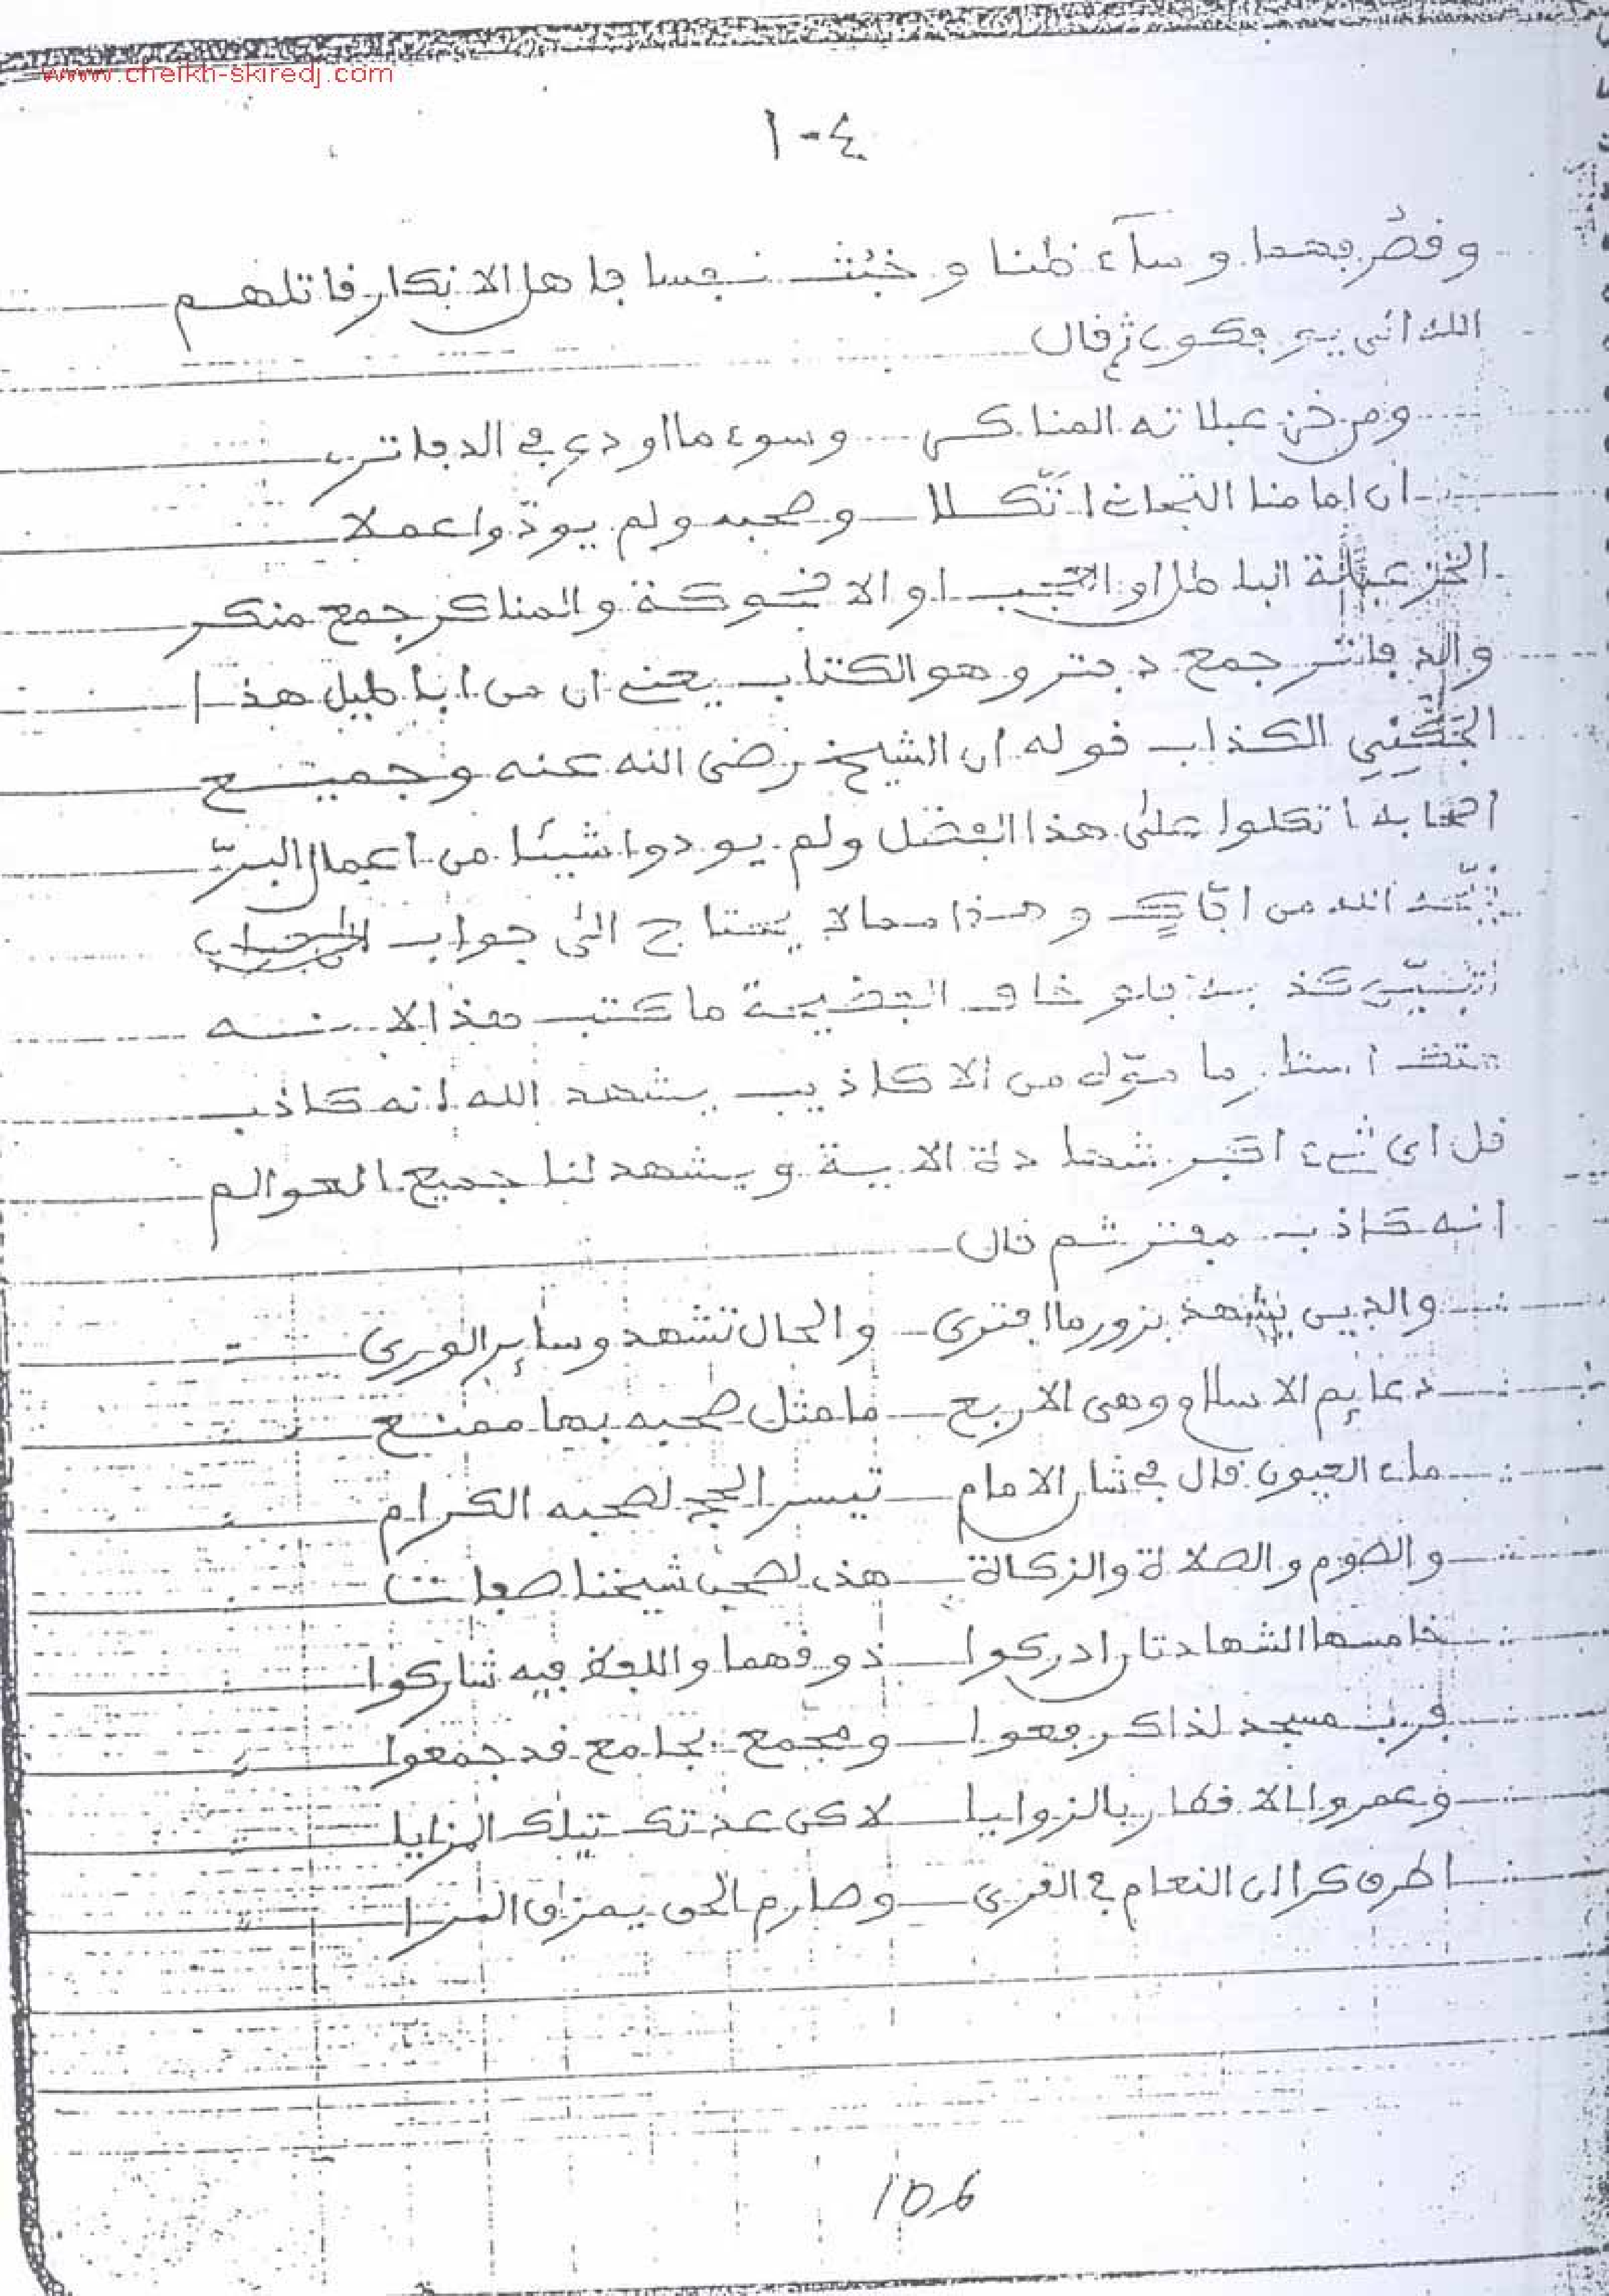 www.cheikh-skiredj.com
١٠٤
وقصر فهما وساء ظنا وخبث نفسا فاهل الانكار قاتلهم
الله انى يوفكون ثم قال
ومن خزعبلاته المناكر وسوء ما اودع في الدفاتر
ان امامنا التجان اتكلا وصحبه ولم يودوا عملا
الخزعبلة الباطل او العجب او الاضحوكة والمناكر جمع منكر
والدفاتر جمع دفتر وهو الكتاب يعنى ان من اباطيل هذا
الجكني الكذاب قوله ان الشيخ رضى الله عنه وجميع
اصحابه اتكلوا على هذا الفضل ولم يودوا شيئا من اعمال البر
الله من افاك وهذا مما لا يحتاج الى جواب
كذبه فلو خاف الفضيحة ما كتب هذا لانه
من الاكاذيب يشهد الله انه كاذب
قل اى شىء اكبر شهادة الاية ويشهد لنا جميع العوالم
انه كاذب مفتر ثم قال
والدين يشهد بزور ما افترى والحال تشهد وساير الورى
دعايم الاسلام وهى الاربع ما مثل صحبه بها ممتع
ملء العيون قال في شان الامام تيسر الحج لصحبه الكرام
والصوم والصلاة والزكاة هذى لصحب شيخنا صفات
خامسها الشهادتان ادركوا ذوقهما واللفظ فيه شاركوا
فرب مسجد لذاكر رفعوا ومجمع بجامع قد جمعوا
وعمروا الاقطار بالزوايا لاكن عدتك تيلك المزايا
اطرق كرا ان النعام في القرى وصارم الحق يمزق المرا
106